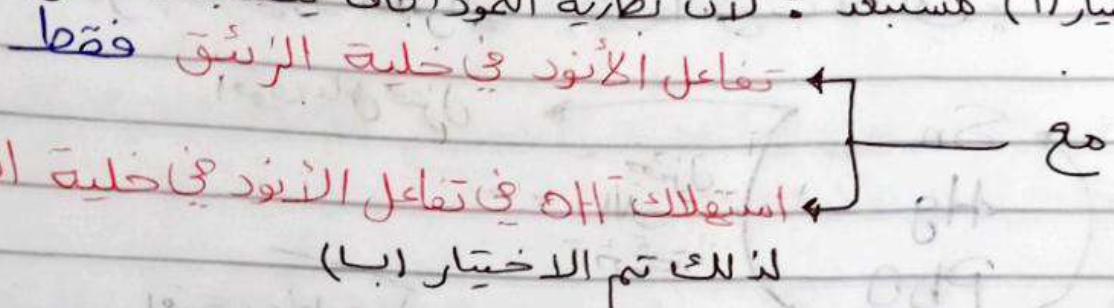 (ا) مستبعد . لأن
تفاعل الأنود في خلية الزئبق فقط
مع
استهلاك OH⁻ في تفاعل الأنود في خلية
لذلك تم الاختيار (ب)